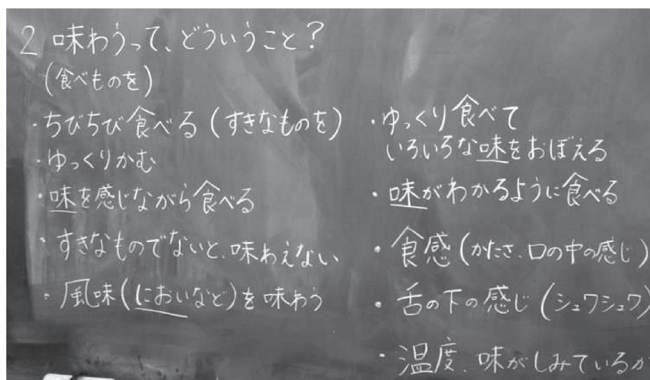 2 味わうって、どういうこと？
(食べものを)
・ちびちび食べる (すきなものを)
・ゆっくりかむ
・味を感じながら食べる
・すきなものでないと、味わえない
・風味(においなど)を味わう
・ゆっくり食べて
いろいろな味をおぼえる
・味がわかるように食べる
・食感(かたさ、口の中の感じ)
・舌の下の感じ(シュワシュワ)
・温度、味がしみているか